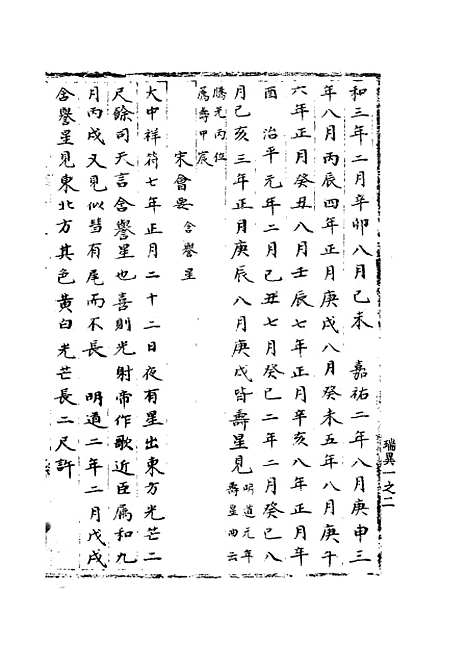 和三年二月辛卯八月己未　嘉祐二年八月庚申三
年八月丙辰四年正月庚戌八月癸未五年八月庚午
六年正月癸丑八月壬辰七年正月辛亥八年正月年
酉　治平元年二月己丑七月癸巳二年二月癸巳八
月己亥三年正月庚辰八月庚戌皆壽星見明道元年
壽星曲云
騰光丙位
薦壽甲宸
宋會要　含譽星
大中祥符七年正月二十二日夜有星出東方光芒二
尺餘司天言含譽星也喜則光射帝作歌近臣屬和九
月丙戌又見似彗有尾而不長　明道二年二月戊戌
含譽星見東北方其色黃白光芒長二尺許
瑞異一之二